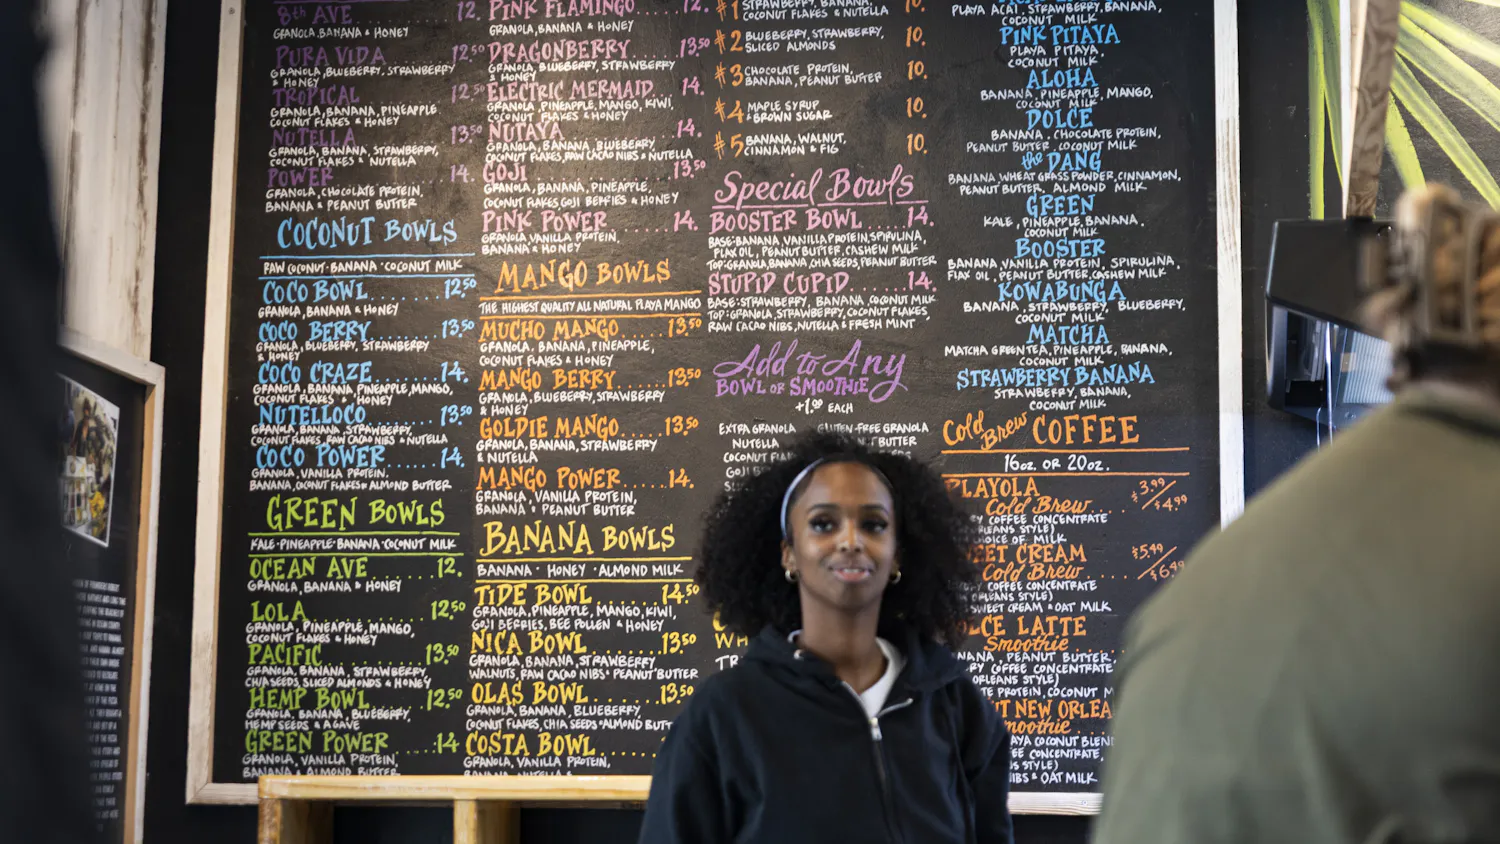 8th AVE 12.
GRANOLA, BANANA & HONEY
PURA VIDA 12.50
GRANOLA, BLUEBERRY, STRAWBERRY
& HONEY
TROPICAL 12.50
GRANOLA, BANANA, PINEAPPLE
COCONUT FLAKES & HONEY
NUTELLA 13.50
GRANOLA, BANANA, STRAWBERRY,
COCONUT FLAKES & NUTELLA
POWER 14.
GRANOLA, CHOCOLATE PROTEIN,
BANANA & PEANUT BUTTER
COCONUT BOWLS
RAW COCONUT · BANANA · COCONUT MILK
COCO BOWL........12.50
GRANOLA, BANANA & HONEY
COCO BERRY.......13.50
GRANOLA, BLUEBERRY, STRAWBERRY
& HONEY
COCO CRAZE.......14.
GRANOLA, BANANA, PINEAPPLE, MANGO,
COCONUT FLAKES & HONEY
NUTELLOCO......13.50
GRANOLA, BANANA, STRAWBERRY,
COCONUT FLAKES, RAW CACAO NIBS & NUTELLA
COCO POWER......14.
GRANOLA, VANILLA PROTEIN,
BANANA, COCONUT FLAKES & ALMOND BUTTER
GREEN BOWLS
KALE · PINEAPPLE · BANANA · COCONUT MILK
OCEAN AVE......12.
GRANOLA, BANANA & HONEY
LOLA............12.50
GRANOLA, PINEAPPLE, MANGO,
COCONUT FLAKES & HONEY
PACIFIC.........13.50
GRANOLA, BANANA, STRAWBERRY,
CHIA SEEDS, SLICED ALMONDS & HONEY
HEMP BOWL......12.50
GRANOLA, BANANA, BLUEBERRY,
HEMP SEEDS & AGAVE
GREEN POWER.....14
GRANOLA, VANILLA PROTEIN,
BANANA & ALMOND BUTTER
PINK FLAMINGO......12.
GRANOLA, BANANA & HONEY
DRAGONBERRY......13.50
GRANOLA, BLUEBERRY, STRAWBERRY
& HONEY
ELECTRIC MERMAID...14.
GRANOLA, PINEAPPLE, MANGO, KIWI,
COCONUT FLAKES & HONEY
NUTAYA............14.
GRANOLA, BANANA, BLUEBERRY,
COCONUT FLAKES, RAW CACAO NIBS & NUTELLA
GOJI..............13.50
GRANOLA, BANANA, PINEAPPLE,
COCONUT FLAKES, GOJI BERRIES & HONEY
PINK POWER........14.
GRANOLA, VANILLA PROTEIN,
BANANA & HONEY
MANGO BOWLS
THE HIGHEST QUALITY ALL NATURAL PLAYA MANGO
MUCHO MANGO.....13.50
GRANOLA, BANANA, PINEAPPLE,
COCONUT FLAKES & HONEY
MANGO BERRY......13.50
GRANOLA, BLUEBERRY, STRAWBERRY
& HONEY
GOLDIE MANGO.....13.50
GRANOLA, BANANA, STRAWBERRY
& NUTELLA
MANGO POWER......14.
GRANOLA, VANILLA PROTEIN,
BANANA & PEANUT BUTTER
BANANA BOWLS
BANANA · HONEY · ALMOND MILK
TIDE BOWL........14.50
GRANOLA, PINEAPPLE, MANGO, KIWI,
GOJI BERRIES, BEE POLLEN & HONEY
NICA BOWL........13.50
GRANOLA, BANANA, STRAWBERRY
WALNUTS, RAW CACAO NIBS & PEANUT BUTTER
OLAS BOWL........13.50
GRANOLA, BANANA, BLUEBERRY,
COCONUT FLAKES, CHIA SEEDS & ALMOND BUTT
COSTA BOWL.......
GRANOLA, VANILLA PROTEIN,
BANANA, NUTELLA &
#1 STRAWBERRY, BANANA, 10.
COCONUT FLAKES & NUTELLA
#2 BLUEBERRY, STRAWBERRY, 10.
SLICED ALMONDS
#3 CHOCOLATE PROTEIN, 10.
BANANA, PEANUT BUTTER
#4 MAPLE SYRUP 10.
& BROWN SUGAR
#5 BANANA, WALNUT, 10.
CINNAMON & FIG
Special Bowls
BOOSTER BOWL.....14.
BASE: BANANA, VANILLA PROTEIN, SPIRULINA,
FLAX OIL, PEANUT BUTTER, CASHEW MILK
TOP: GRANOLA, BANANA, CHIA SEEDS, PEANUT BUTTER
STUPID CUPID......14.
BASE: STRAWBERRY, BANANA, COCONUT MILK
TOP: GRANOLA, STRAWBERRY, COCONUT FLAKES,
RAW CACAO NIBS, NUTELLA & FRESH MINT
Add to Any
BOWL or SMOOTHIE
+1.00 EACH
EXTRA GRANOLA GLUTEN-FREE GRANOLA
NUTELLA T BUTTER
COCONUT FL
GOJI
WH
TR
PLAYA ACAI, STRAWBERRY, BANANA,
COCONUT MILK
PINK PITAYA
PLAYA PITAYA,
COCONUT MILK
ALOHA
BANANA, PINEAPPLE, MANGO,
COCONUT MILK
DOLCE
BANANA, CHOCOLATE PROTEIN,
PEANUT BUTTER, COCONUT MILK
the DANG
BANANA, WHEAT GRASS POWDER, CINNAMON,
PEANUT BUTTER, ALMOND MILK
GREEN
KALE, PINEAPPLE, BANANA,
COCONUT MILK
BOOSTER
BANANA, VANILLA PROTEIN, SPIRULINA,
FLAX OIL, PEANUT BUTTER, CASHEW MILK
KOWABUNGA
BANANA, STRAWBERRY, BLUEBERRY,
COCONUT MILK
MATCHA
MATCHA GREEN TEA, PINEAPPLE, BANANA,
COCONUT MILK
STRAWBERRY BANANA
STRAWBERRY, BANANA,
COCONUT MILK
Cold Brew COFFEE
16oz. OR 20oz.
PLAYOLA
Cold Brew.... $3.99/$4.99
RY COFFEE CONCENTRATE
RLEANS STYLE)
CHOICE OF MILK
EET CREAM $5.49
Cold Brew...... /$6.49
RY COFFEE CONCENTRATE
ORLEANS STYLE)
SWEET CREAM & OAT MILK
LCE LATTE
Smoothie..........
NANA, PEANUT BUTTER
RY COFFEE CONCENTRATE
ORLEANS STYLE)
TE PROTEIN, COCONUT M
UT NEW ORLEA
moothie.....
AYA COCONUT BLEN
EE CONCENTRATE,
S STYLE)
NIBS & OAT MILK